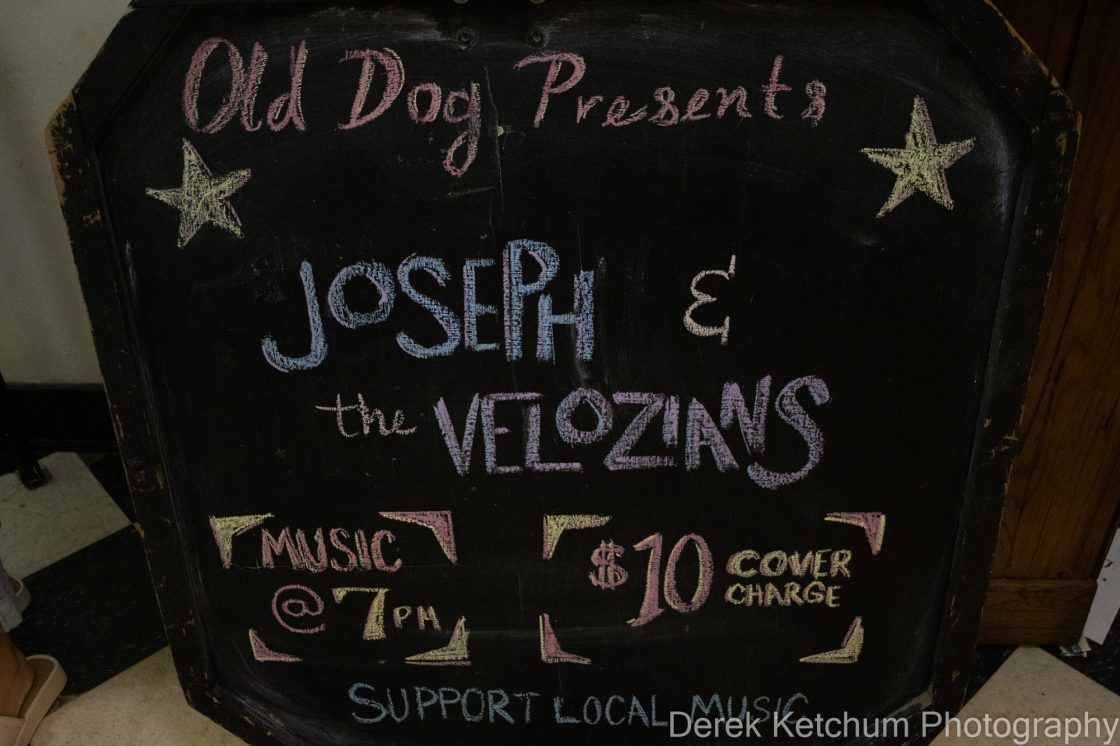 Old Dog Presents
JOSEPH &
the VELOZIANS
MUSIC
@ 7PM
$10 COVER CHARGE
SUPPORT LOCAL MUSIC
Derek Ketchum Photography